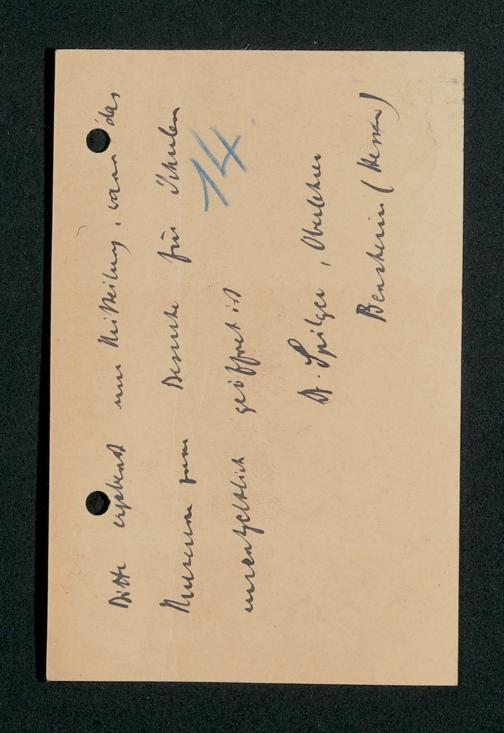 Bitte ergebenst um Mitteilung, wann das
Museum zum Besuche für Schulen
14
unentgeltlich geöffnet ist
Dr. Spilger, Oberlehrer
Bensheim (Hessen)